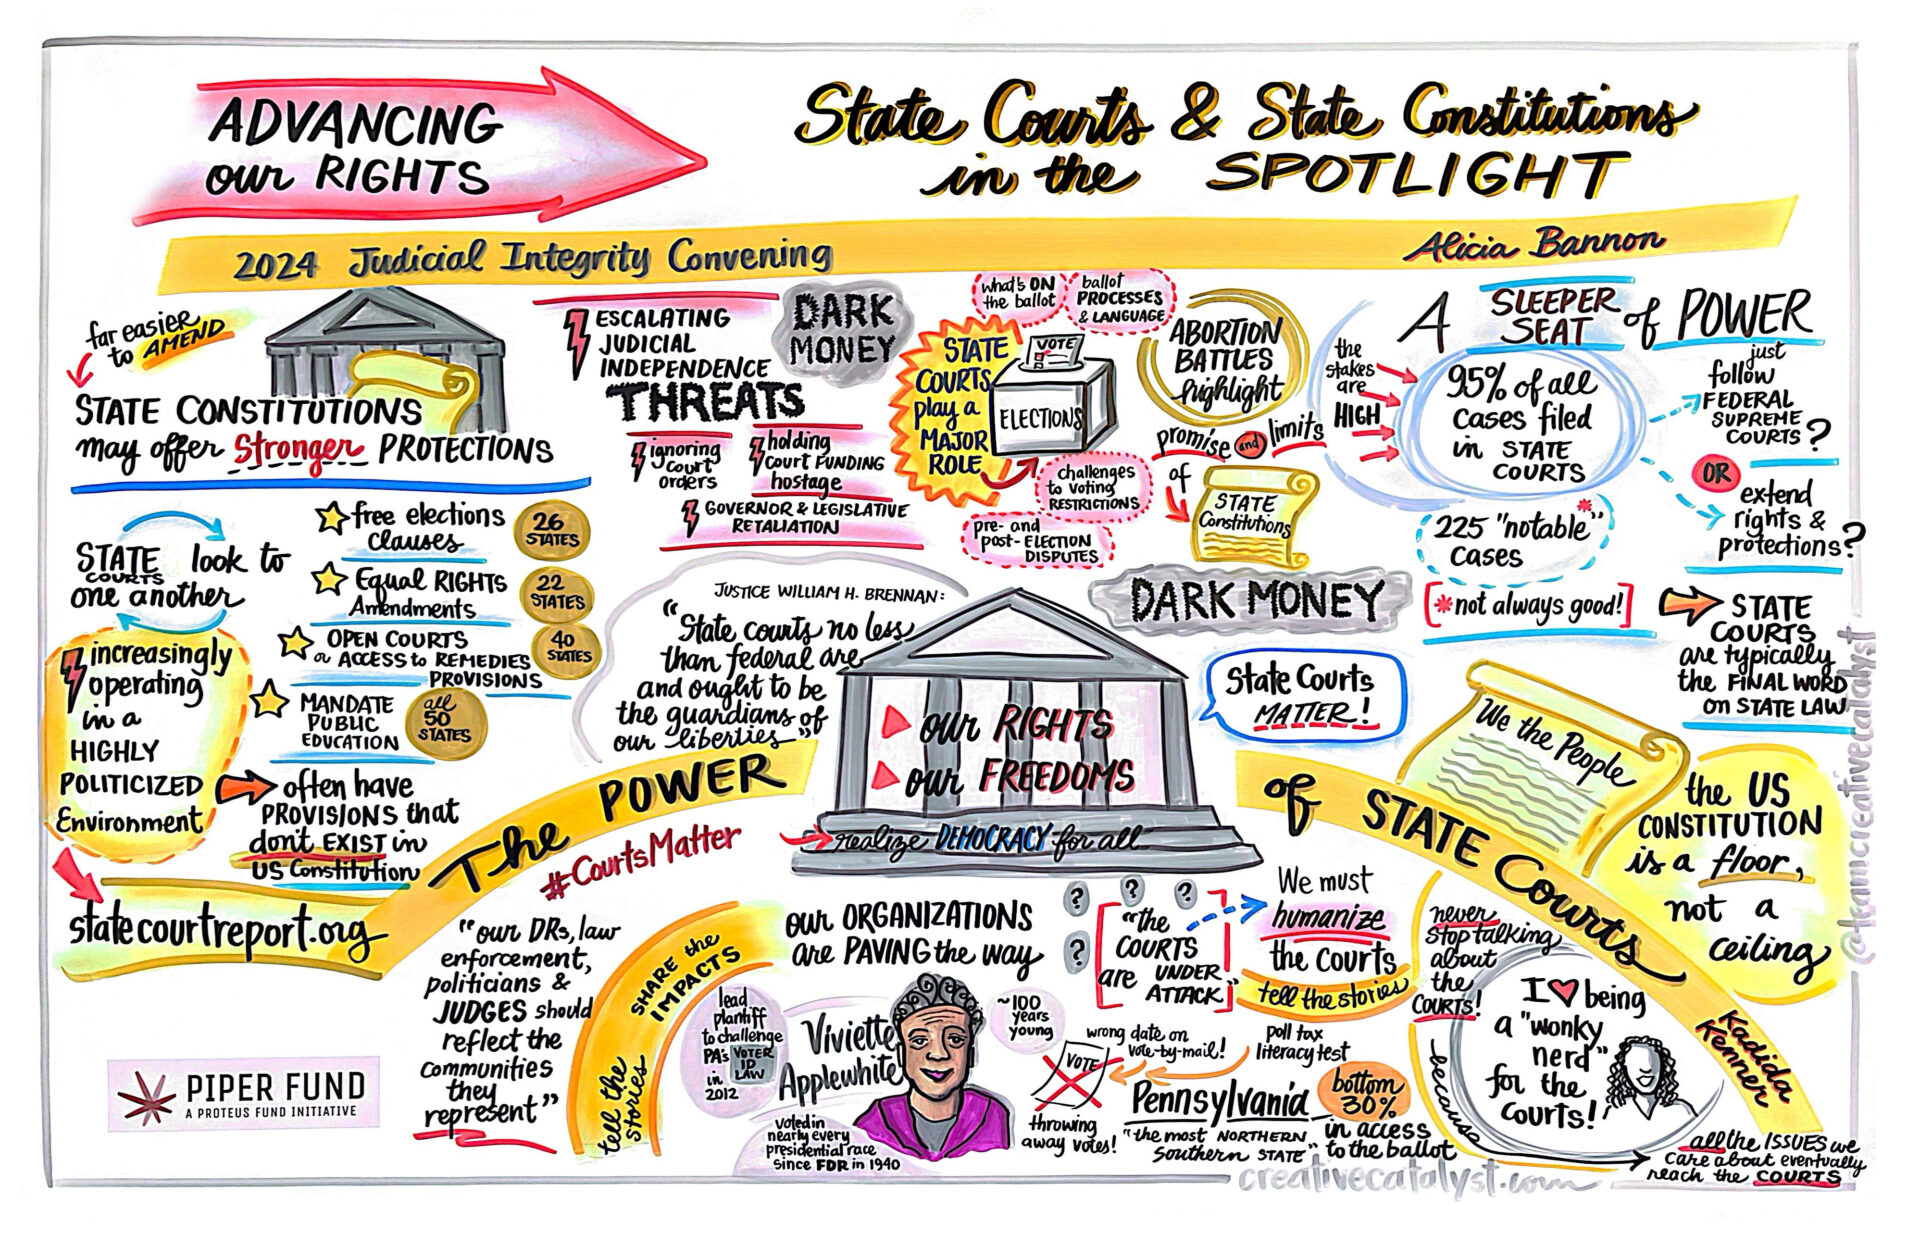 ADVANCING
our RIGHTS
State Courts & State Constitutions
in the SPOTLIGHT
2024 Judicial Integrity Convening
Alicia Bannon
far easier
to AMEND
STATE CONSTITUTIONS
may offer Stronger PROTECTIONS
STATE
COURTS
look to
one another
increasingly
operating
in a
HIGHLY
POLITICIZED
Environment
statecourtreport.org
free elections
clauses
26
STATES
Equal RIGHTS
Amendments
22
STATES
OPEN COURTS
or ACCESS to REMEDIES
PROVISIONS
40
STATES
MANDATE
PUBLIC
EDUCATION
all
50
STATES
often have
PROVISIONS that
don't EXIST in
US Constitution
ESCALATING
JUDICIAL
INDEPENDENCE
THREATS
DARK
MONEY
ignoring
court
orders
holding
court FUNDING
hostage
GOVERNOR & LEGISLATIVE
RETALIATION
STATE
COURTS
play a
MAJOR
ROLE
VOTE
ELECTIONS
what's ON
the ballot
ballot
PROCESSES
& LANGUAGE
challenges
to voting
RESTRICTIONS
pre- and
post-ELECTION
DISPUTES
ABORTION
BATTLES
highlight
promise and limits
of
STATE
Constitutions
the
stakes
are
HIGH
A SLEEPER
SEAT of POWER
95% of all
cases filed
in STATE
COURTS
just
follow
FEDERAL
SUPREME
COURTS?
OR
extend
rights &
protections?
225 "notable"*
cases
[*not always good!]
STATE
COURTS
are typically
the FINAL WORD
on STATE LAW
JUSTICE WILLIAM H. BRENNAN:
"State courts no less
than federal are
and ought to be
the guardians of
our liberties"
DARK MONEY
State Courts
MATTER!
our RIGHTS
our FREEDOMS
realize DEMOCRACY for all
We the People
the US
CONSTITUTION
is a floor,
not a
ceiling
The POWER
of STATE Courts
#CourtsMatter
"our DRs, law
enforcement,
politicians &
JUDGES should
reflect the
communities
they
represent"
tell the
stories
SHARE the
IMPACTS
our ORGANIZATIONS
are PAVING the way
lead
plantiff
to challenge
PA's VOTER
ID
LAW
in
2012
Viviette
Applewhite
~100
years
young
voted in
nearly every
presidential race
since FDR in 1940
? ? ?
?
"the
COURTS
are UNDER
ATTACK"
We must
humanize
the courts
tell the stories
wrong date on
vote-by-mail!
VOTE
throwing
away votes!
poll tax
literacy test
Pennsylvania
"the most NORTHERN
Southern STATE"
bottom
30%
in access
to the ballot
never
stop talking
about
the
COURTS!
because
I ♥ being
a "wonky
nerd"
for the
courts!
Kadida
Kenner
all the ISSUES we
care about eventually
reach the COURTS
PIPER FUND
A PROTEUS FUND INITIATIVE
creativecatalyst.com